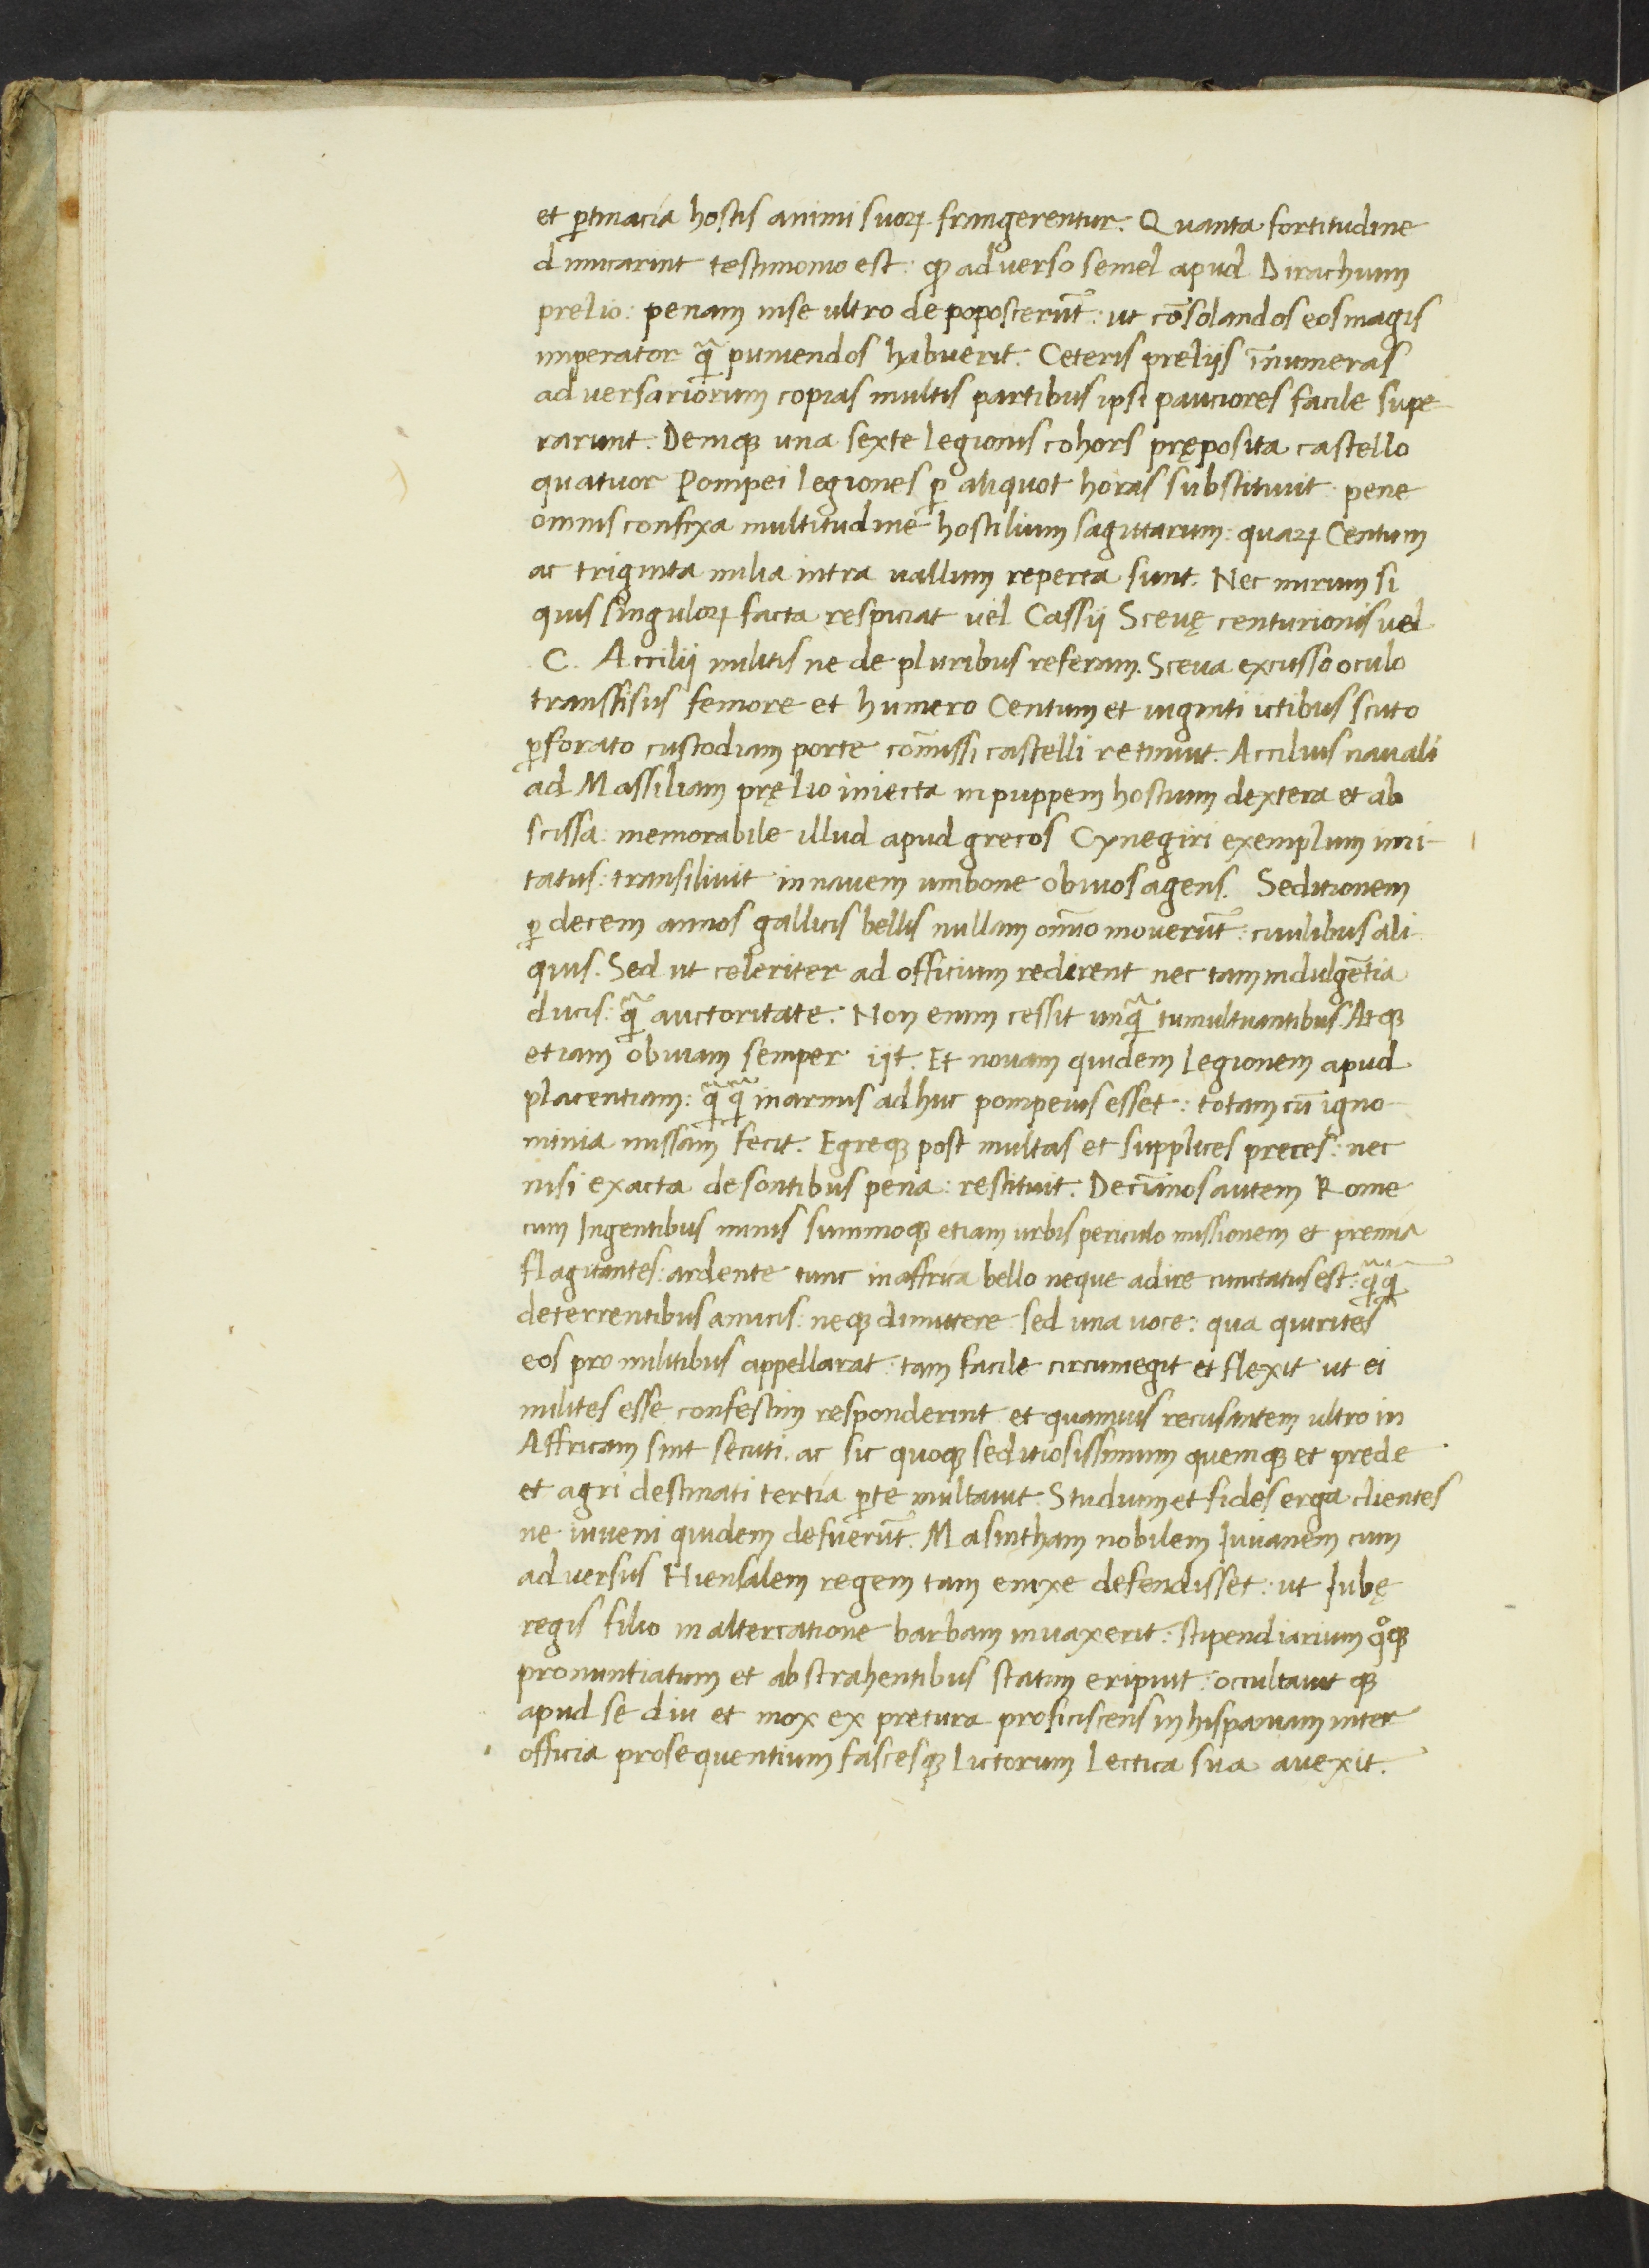 et ꝑtinacia hostis animi suoꝝ frangerentur. Quanta fortitudine
dimicarint testimonio est: ꝙ adverso semel apud Dirachium
prelio: penam in se ultro depoposcerũt: ut cõsolandos eos magis
imperator q̃ puniendos habuerit. Ceteris preliis ĩnumeras
adversariorum copias multis partibus ipsi pauciores facile supe
rarunt. Deniqꝫ una sexte legionis cohors pręposita castello
quatuor Pompei legiones ꝑ aliquot horas substituit: pene
omnis confixa multitudine hostilium sagittarum: quaꝝ Centum
ac triginta milia intra uallum reperta sunt. Nec mirum si
quis singuloꝝ facta respiciat uel Cassij Sceuę centurionis uel
C. Accilij militis ne de pluribus referam. Sceua excusso oculo
transfisus femore et humero Centum et uiginti ictibus scuto
ꝑforato custodiam porte cõmissi castelli retinuit. Accilius nauali
ad Massiliam pręlio iniecta in puppem hostium dextera et ab
scissa: memorabile illud apud grecos Cynegiri exemplum imi-
tatus: transiliuit in nauem umbone obuios agens. Seditionem
ꝑ decem annos gallicis bellis nullam om̃o mouerũt: ciuilibus ali
quis. Sed ut celeriter ad officium redirent nec tam indulgẽtia
ducis: q̃ auctoritate. Non enim cessit unq̃ tumultuantibus. Atqꝫ
etiam obuiam semper ijt. Et nouam quidem legionem apud
placentiam: q̃q̃ in armis adhuc pompeius esset: totam cũ igno-
minia missam fecit. Egreqꝫ post multas et supplices preces: nec
nisi exacta de sontibus pena: restituit. Decĩmos autem Rome
cum Ingentibus minis summoqꝫ etiam urbis periculo missionem et premia
flagitantes: ardente tunc in affrica bello neque adire cunctatus est: q̃q̃
deterrentibus amicis: neqꝫ dimittere sed una uoce: qua quirites
eos pro militibus appellarat: tam facile circumegit et flexit ut ei
milites esse confestim responderint et quamuis recusantem ultro in
Affricam sint secuti. ac sic quoqꝫ seditiosissimum quemqꝫ et prede
et agri destinati tertia ꝑte multauit. Studium et fides erga clientes
ne iuueni quidem defuerũt. Masintham nobilem Iuuanem cum
adversus Hiensalem regem tam enixe defendisset: ut Iubę
regis filio in altercatione barbam inuaxerit: stipendiarium qͦqꝫ
pronuntiatum et abstrahentibus statim eripuit: occultauit qꝫ
apud se diu et mox ex pretura proficiscens in hispaniam inter
officia prosequentium fascesqꝫ lictorum Lectica sua auexit.